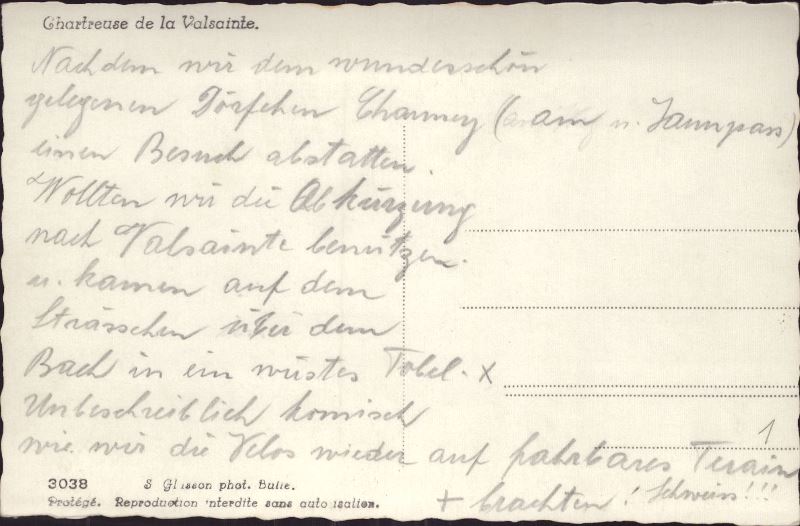 Chartreuse de la Valsainte.
Nachdem wir dem wunderschön
gelegenen Dörfchen Charmey (am u. Jaunpass)
einen Besuch abstatten.
Wollten wir die Abkürzung
nach Valsainte benützen.
u. kamen auf dem
Strässchen über dem
Bach in ein wüstes Tobel. x
Unbeschreiblich komisch
wie wir die Velos wieder auf fahrbares Terrain
+ brachten! Schweiss!!!
1
3038 S. Glasson phot. Bulle.
Protégé. Reproduction interdite sans autorisation.